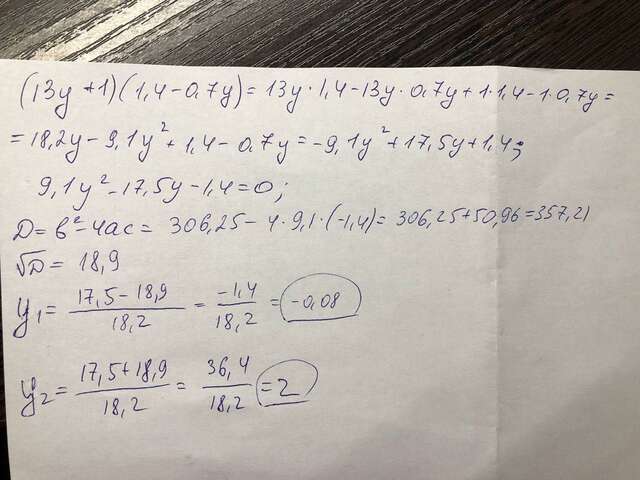 (13y+1)(1,4-0,7y)=13y·1,4-13y·0,7y+1·1,4-1·0,7y=
=18,2y-9,1y²+1,4-0,7y=-9,1y²+17,5y+1,4;
9,1y²-17,5y-1,4=0;
D=в²-4ac=306,25-4·9,1·(-1,4)=306,25+50,96=357,21
√D=18,9
y₁=(17,5-18,9)/18,2=-1,4/18,2=-0,08
y₂=(17,5+18,9)/18,2=36,4/18,2=2